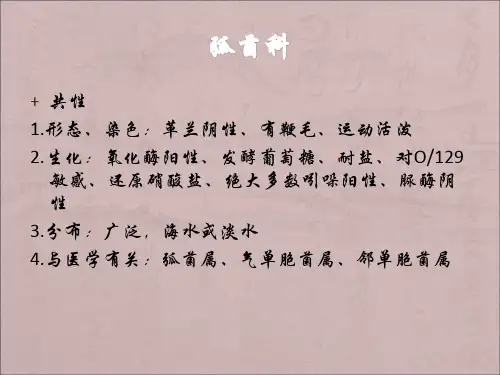 弧菌科
+ 共性
1.形态、染色：革兰阴性、有鞭毛、运动活泼
2.生化：氧化酶阳性、发酵葡萄糖、耐盐、对O/129
敏感、还原硝酸盐、绝大多数吲哚阳性、脲酶阴
性
3.分布：广泛，海水或淡水
4.与医学有关：弧菌属、气单胞菌属、邻单胞菌属